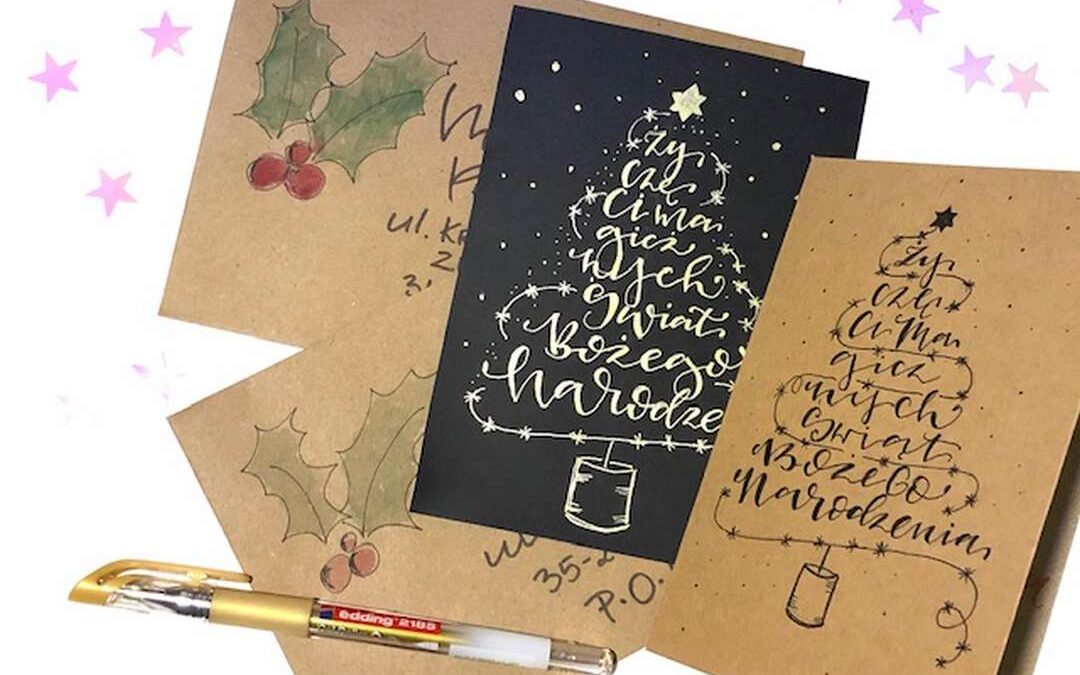 ul. Kr
Ży
czę
Ci ma
gicz
nych
Świąt
Bożego
Narodze
Ży
czę
Ci Ma
gicz
nych
Świąt
Bożego
Narodzenia
ul
35-2
P.O.
edding 2185